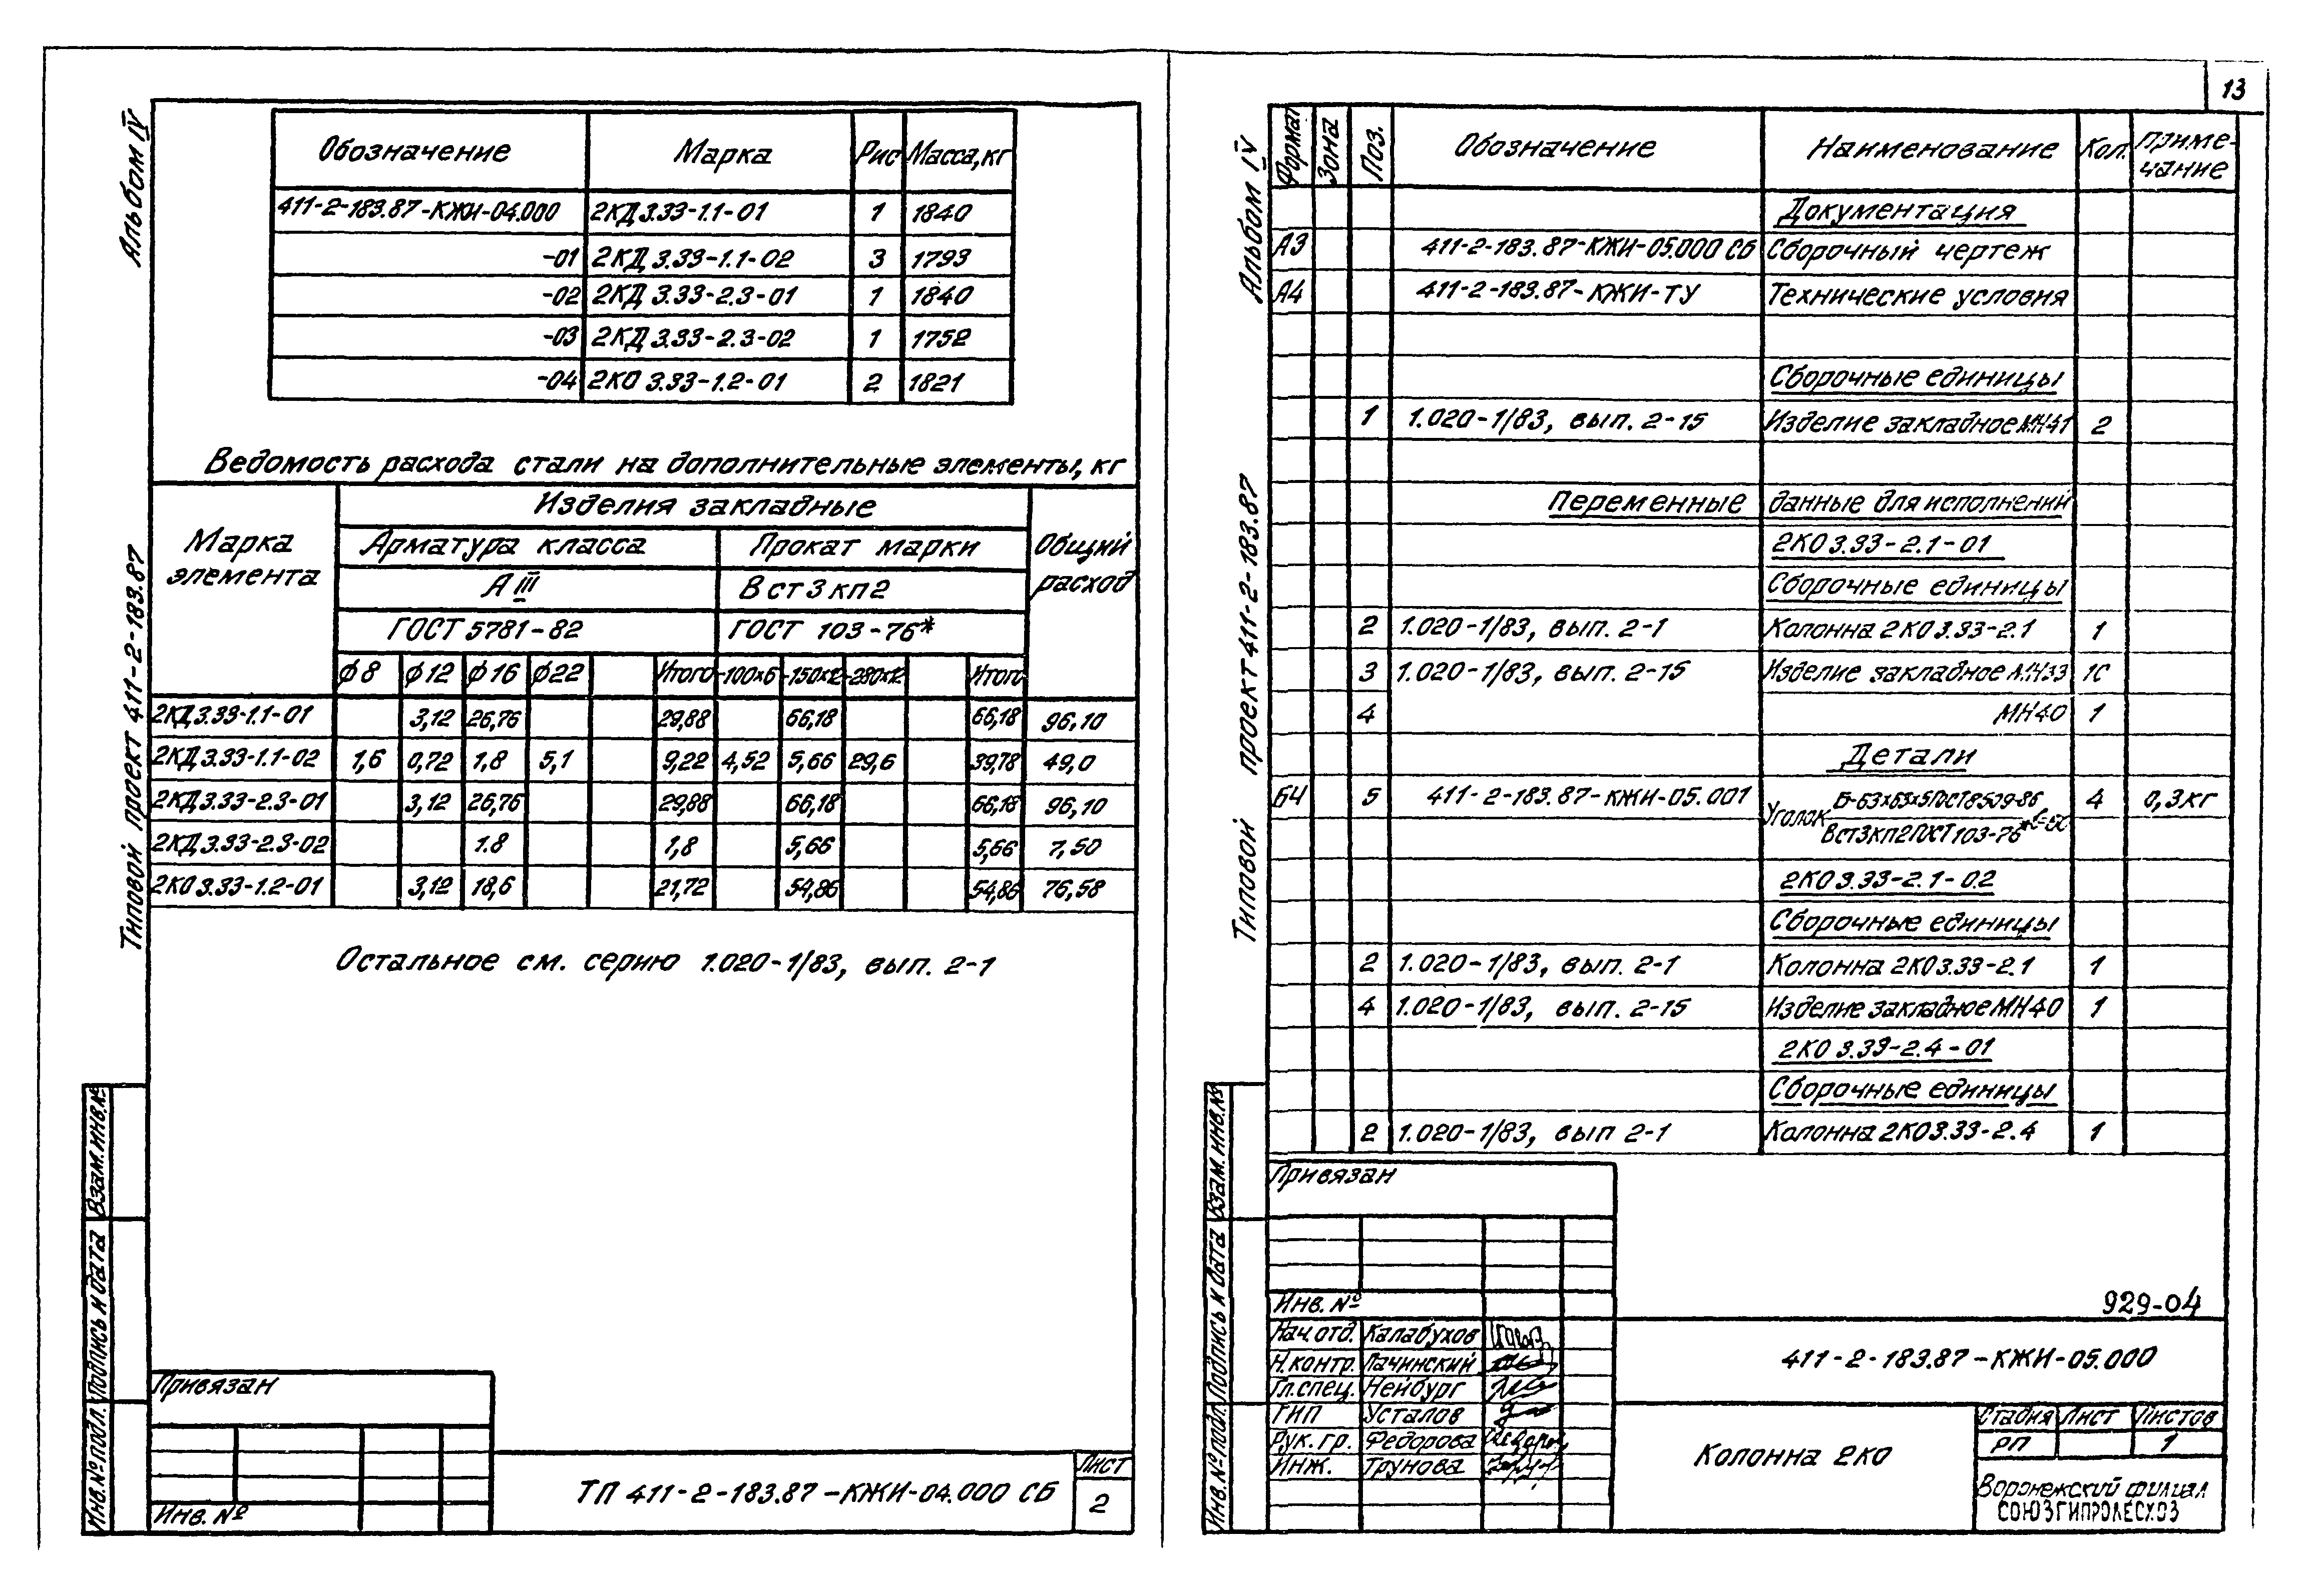 Альбом IV
Типовой проект 411-2-183.87
Обозначение Марка Рис Масса,кг
411-2-183.87-КЖИ-04.000 2КД3.33-1.1-01 1 1840
-01 2КД3.33-1.1-02 3 1793
-02 2КД3.33-2.3-01 1 1840
-03 2КД3.33-2.3-02 1 1752
-04 2КО3.33-1.2-01 2 1821
Ведомость расхода стали на дополнительные элементы, кг
Марка элемента Изделия закладные Общий расход
Арматура класса Прокат марки
А III В ст3кп2
ГОСТ 5781-82 ГОСТ 103-76*
ф8 ф12 ф16 ф22 Итого -100х6 -150х12 -280х12 Итого
2КД3.33-1.1-01 3,12 26,76 29,88 66,18 66,18 96,10
2КД3.33-1.1-02 1,6 0,72 1.8 5,1 9,22 4,52 5,66 29,6 39,78 49,0
2КД3.33-2.3-01 3,12 26,76 29,88 66,18 66,18 96,10
2КД3.33-2.3-02 1.8 1,8 5,66 5,66 7,50
2КО3.33-1.2-01 3,12 18,6 21,72 54,86 54,86 76,58
Остальное см. серию 1.020-1/83, вып. 2-1
Взам.инв.№
Подпись и дата
Инв.№подл.
Привязан
Инв. №
ТП 411-2-183.87-КЖИ-04.000 СБ
Лист
2
13
Альбом IV
Типовой проект 411-2-183.87
Формат Зона Поз. Обозначение Наименование Кол. Приме-
чание
Документация
А3 411-2-183.87-КЖИ-05.000 СБ Сборочный чертеж
А4 411-2-183.87-КЖИ-ТУ Технические условия
Сборочные единицы
1 1.020-1/83, вып. 2-15 Изделие закладное МН41 2
Переменные данные для исполнений
2КО3.33-2.1-01
Сборочные единицы
2 1.020-1/83, вып. 2-1 Колонна 2КО3.33-2.1 1
3 1.020-1/83, вып. 2-15 Изделие закладное МН33 10
4 МН40 1
Детали
БЧ 5 411-2-183.87-КЖИ-05.001 Уголок Б-63х63х5ГОСТ8509-86 4 0,3кг
Вст3кп2ГОСТ103-76*
2КО3.33-2.1-02
Сборочные единицы
2 1.020-1/83, вып. 2-1 Колонна 2КО3.33-2.1 1
4 1.020-1/83, вып. 2-15 Изделие закладное МН40 1
2КО3.33-2.4-01
Сборочные единицы
2 1.020-1/83, вып 2-1 Колонна 2КО3.33-2.4 1
Взам.инв.№
Подпись и дата
Инв.№подл.
Привязан
Инв. №
929-04
Нач.отд. Калабухов
Н.контр. Лачинский
Гл.спец. Нейбург
ГИП Усталов
Рук. гр. Федорова
Инж. Трунова
411-2-183.87-КЖИ-05.000
Колонна 2КО
Стадия Лист Листов
РП 1
Воронежский филиал
СОЮЗГИПРОЛЕСХОЗ